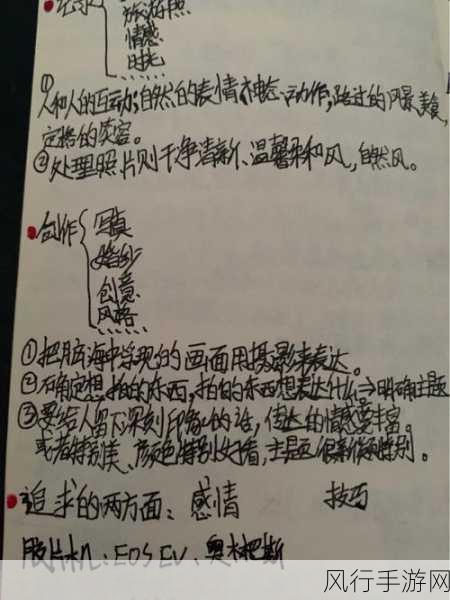 记录
旅游照
情感
时光
①
人和人的互动;自然的表情、神态、动作;路过的风景、美食,
定格的笑容。
②处理照片则干净清新、温馨柔和风,自然风。
创作
写真
婚纱
创意
风格
①把脑海中浮现的画面用摄影来表达。
②确定想拍的东西,拍的东西想表达什么⇒明确主题
③要给人留下深刻印象的话,传达的情感要丰富。
或者特别美、颜色特别好看,主题很新颖特别。
追求的两方面:感情 技巧
胶片机:EOS EV、奥林巴斯
风行手游网